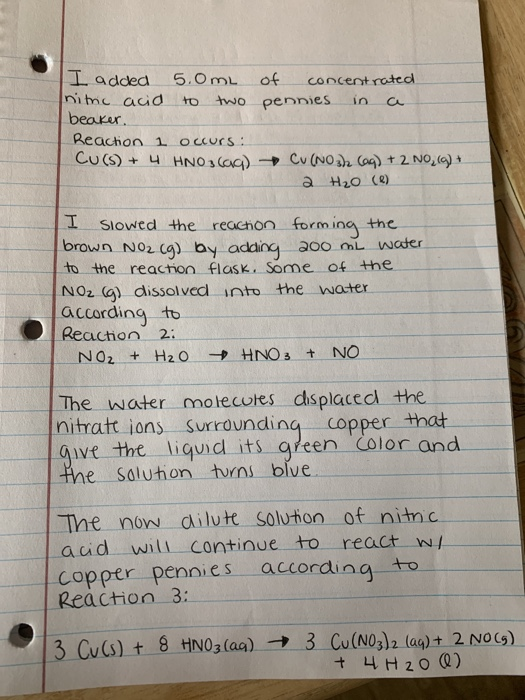 I added 5.0mL of concentrated
nitric acid to two pennies in a
beaker.
Reaction 1 occurs:
Cu(s) + 4 HNO3(aq) → Cu(NO3)2 (aq) + 2 NO2(g) +
2 H2O (l)
I slowed the reaction forming the
brown NO2 (g) by adding 200 mL water
to the reaction flask. Some of the
NO2 (g) dissolved into the water
according to
Reaction 2:
NO2 + H2O → HNO3 + NO
The water molecules displaced the
nitrate ions surrounding copper that
give the liquid its green color and
the solution turns blue.
The now dilute solution of nitric
acid will continue to react w/
copper pennies according to
Reaction 3:
3 Cu(s) + 8 HNO3(aq) → 3 Cu(NO3)2 (aq) + 2 NO(g)
+ 4 H2O (l)